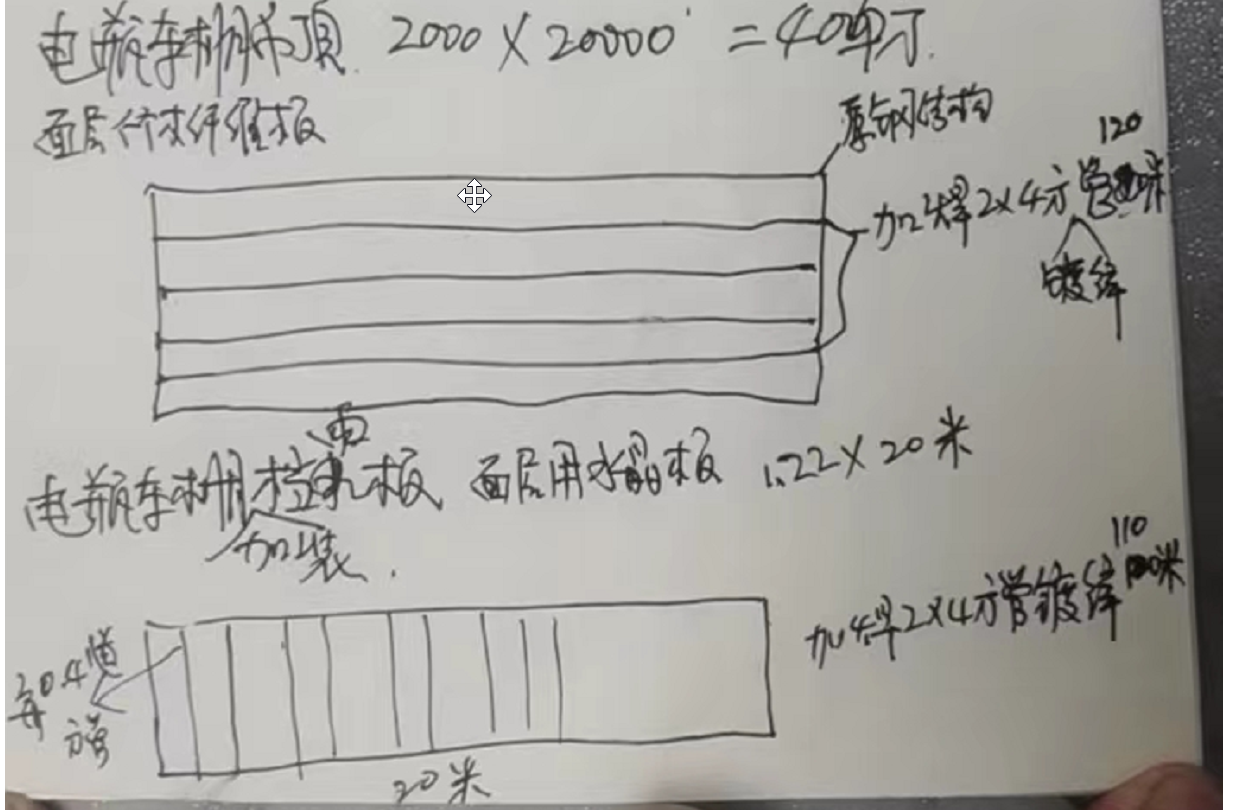 电瓶车棚吊顶 2000×20000 =40平方
面层竹木纤维板
原钢结构
120
加焊2×4方管 米
镀锌
雨
电瓶车棚挡板 面层用水晶板 1.22×20米
加装.
110
加焊2×4方管镀锌 米
每0.4
方管
20米